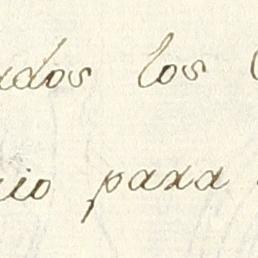 ados los
rio para